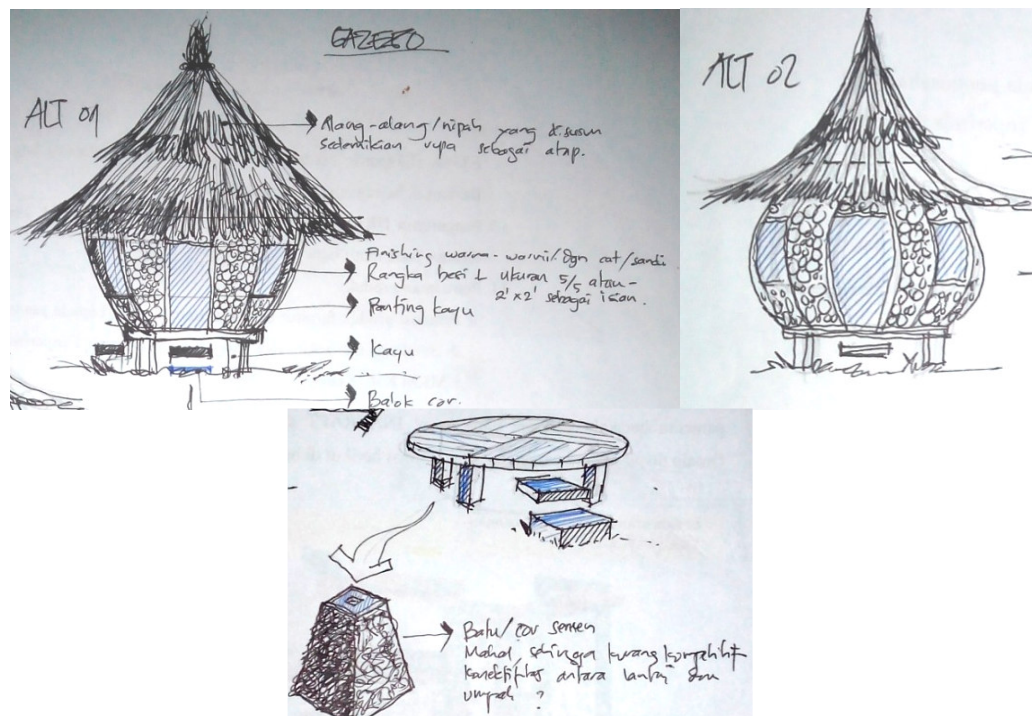 GAZEBO
ALT 01
Alang-alang/nipah yang disusun
sedemikian rupa sebagai atap.
Finishing warna-warni/. dgn cat/
Rangka besi ukuran 5/5 atau
2' x 2' sebagai isian.
Ranting kayu
Kayu
Balok cor.
ALT 02
Batu/cor semen
Mahal, sehingga kurang kompetitif
antara lantai dan
umpak ?